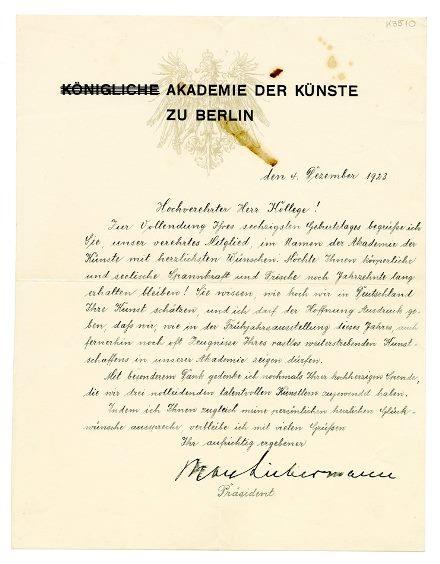 K3510
KÖNIGLICHE AKADEMIE DER KÜNSTE
ZU BERLIN
den 4. Dezember 1923
Hochverehrter Herr Kollege!
Zur Vollendung Ihres sechzigsten Geburtstages begrüße ich
Sie, unser verehrtes Mitglied, im Namen der Akademie der
Künste mit herzlichsten Wünschen. Möchte Ihnen körperliche
und seelische Spannkraft und Frische noch Jahrzehnte lang
erhalten bleiben! Sie wissen, wie hoch wir in Deutschland
Ihre Kunst schätzen, und ich darf der Hoffnung Ausdruck ge-
ben, daß wir, wie in der Frühjahrsausstellung dieses Jahres, auch
fernerhin noch oft Zeugnisse Ihres rastlos weiterstrebenden Kunst-
schaffens in unserer Akademie zeigen dürfen.
Mit besonderem Dank gedenke ich nochmals Ihrer hochherzigen Spende,
die wir drei notleidenden talentvollen Künstlern zugewandt haben.
Indem ich Ihnen zugleich meine persönlichen herzlichen Glück-
wünsche ausspreche, verbleibe ich mit vielen Grüßen
Ihr aufrichtig ergebener
Max Liebermann
Präsident